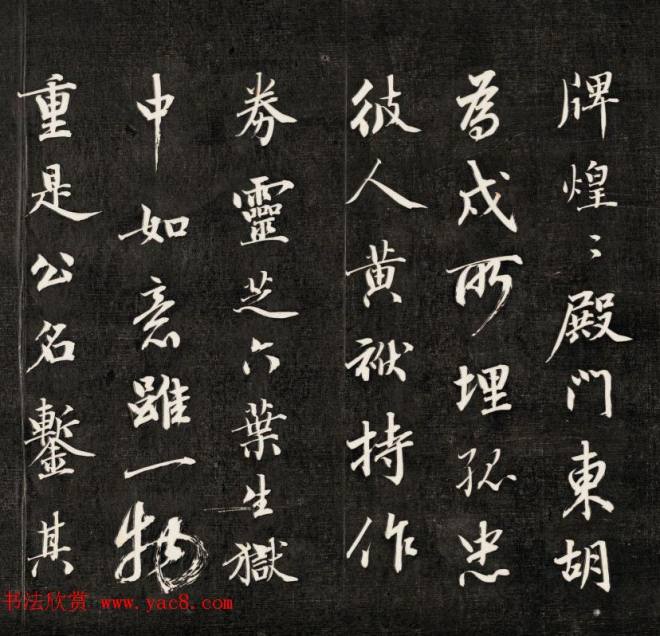 牌煌〻殿門東胡
為戍所埋孤忠
彼人黄袱持作
券靈芝六葉生獄
中如意雖一物
重是公名鏨其
书法欣赏 www.yac8.com